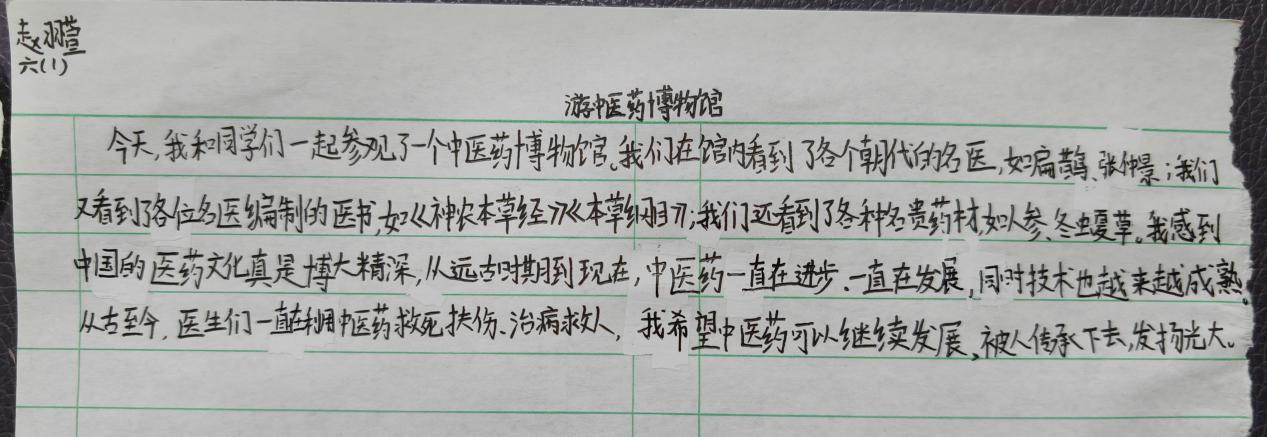 赵羽萱
六(1)
游中医药博物馆
今天,我和同学们一起参观了一个中医药博物馆。我们在馆内看到了各个朝代的名医,如扁鹊、张仲景;我们
又看到了各位名医编制的医书,如《神农本草经》《本草纲目》;我们还看到了各种名贵药材,如人参、冬虫夏草。我感到
中国的医药文化真是博大精深,从远古时期到现在,中医药一直在进步、一直在发展,同时技术也越来越成熟。
从古至今,医生们一直在利用中医药救死扶伤、治病救人,我希望中医药可以继续发展、被人传承下去,发扬光大。